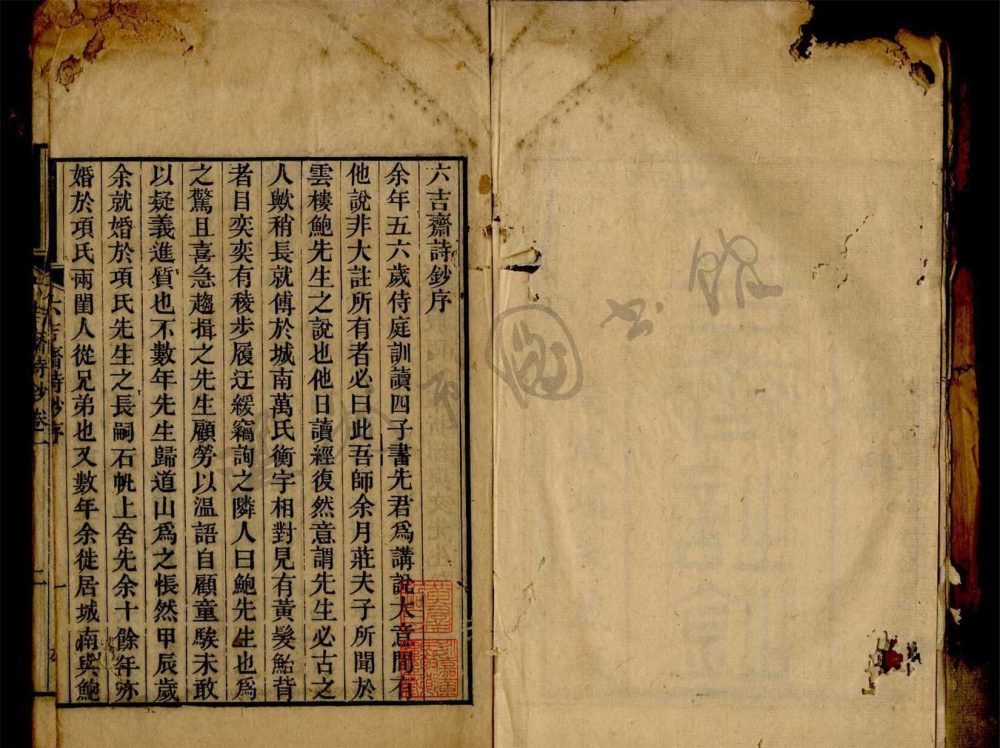 六吉齋詩鈔序
余年五六歲侍庭訓讀四子書先君爲講說大意間有
他說非大註所有者必曰此吾師余月莊夫子所聞於
雲樓鮑先生之說也他日讀經復然意謂先生必古之
人歟稍長就傅於城南萬氏衡宇相對見有黃髮鮐背
者目奕奕有稜步履迂緩竊詢之隣人曰鮑先生也爲
之驚且喜急趨揖之先生顧勞以溫語自顧童騃未敢
以疑義進質也不數年先生歸道山爲之悵然甲辰歲
余就婚於項氏先生之長嗣石帆上舍先余十餘年亦
婚於項氏兩閨人從兄弟也又數年余徙居城南與鮑
六吉齋詩鈔序
圖書館